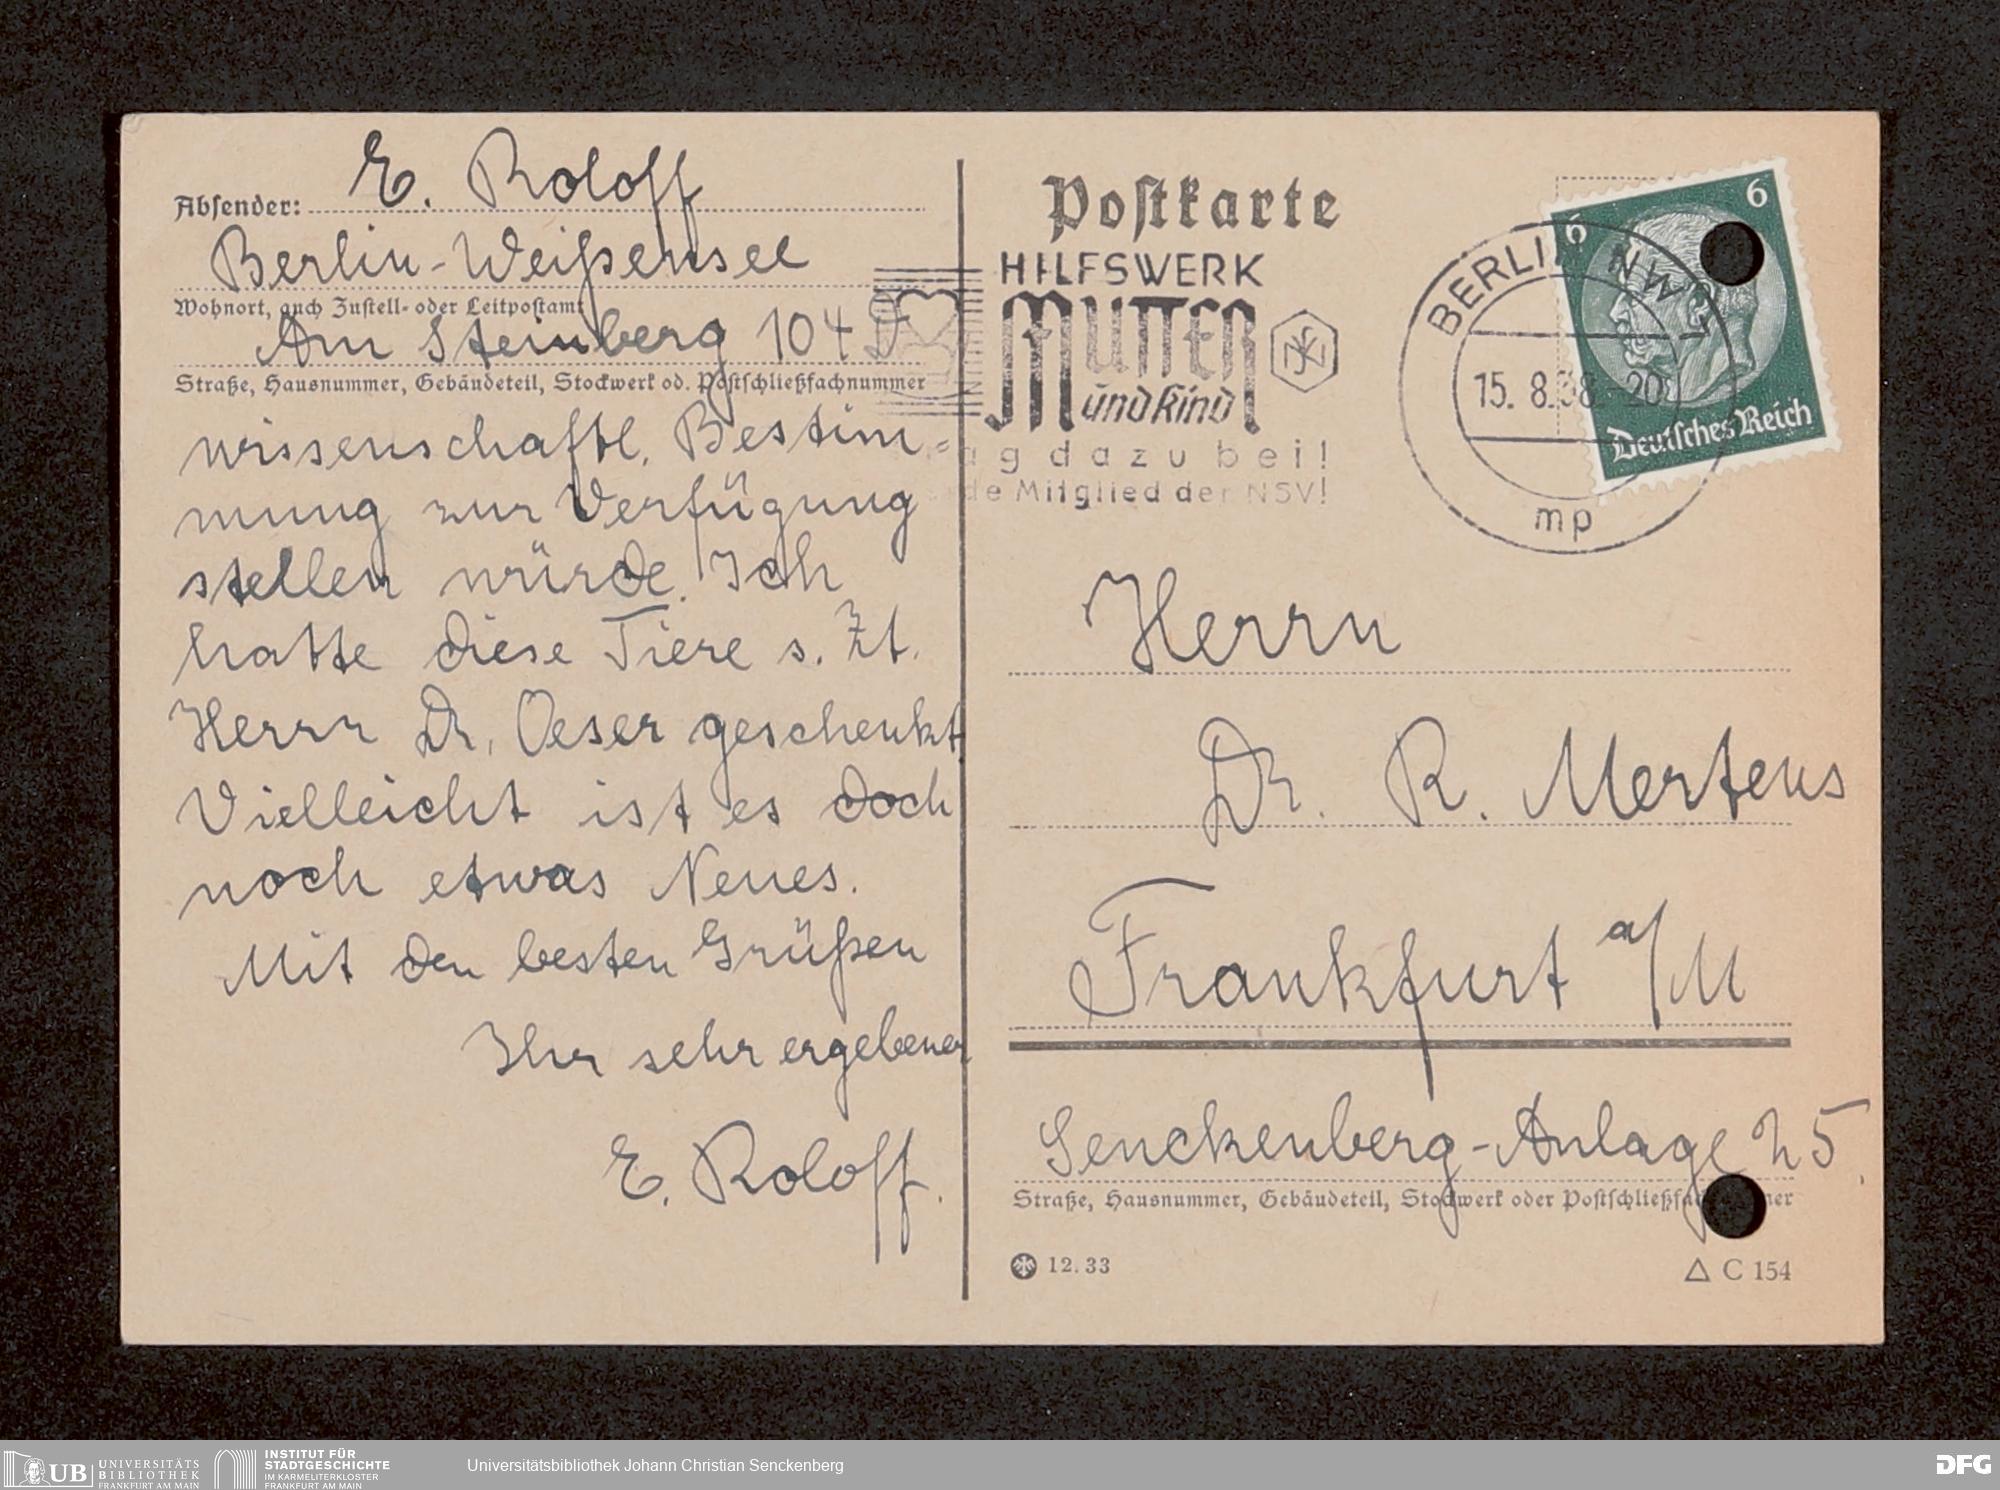 Absender: E. Roloff
Berlin-Weißensee
Wohnort, auch Zustell- oder Leitpostamt
Am Steinberg 104
Straße, Hausnummer, Gebäudeteil, Stockwerk od. Postschließfachnummer
wissenschaftl. Bestim-
mung zur Verfügung
stellen würde. Ich
hatte diese Tiere s. Zt.
Herrn Dr. Oeser geschenkt
Vielleicht ist es doch
noch etwas Neues.
Mit den besten Grüßen
Ihr sehr ergebener
E. Roloff.
Postkarte
HILFSWERK
MUTTER
und Kind
dazu bei!
Mitglied der NSV!
BERLIN NW 7
15. 8.38. 20
mp
6 6
Deutsches Reich
Herrn
Dr. R. Mertens
Frankfurt a/M
Senckenberg-Anlage 25.
Straße, Hausnummer, Gebäudeteil, Stockwerk oder
12.33
△ C 154
UB UNIVERSITÄTS
BIBLIOTHEK
FRANKFURT AM MAIN
INSTITUT FÜR
STADTGESCHICHTE
IM KARMELITERKLOSTER
FRANKFURT AM MAIN
Universitätsbibliothek Johann Christian Senckenberg
DFG